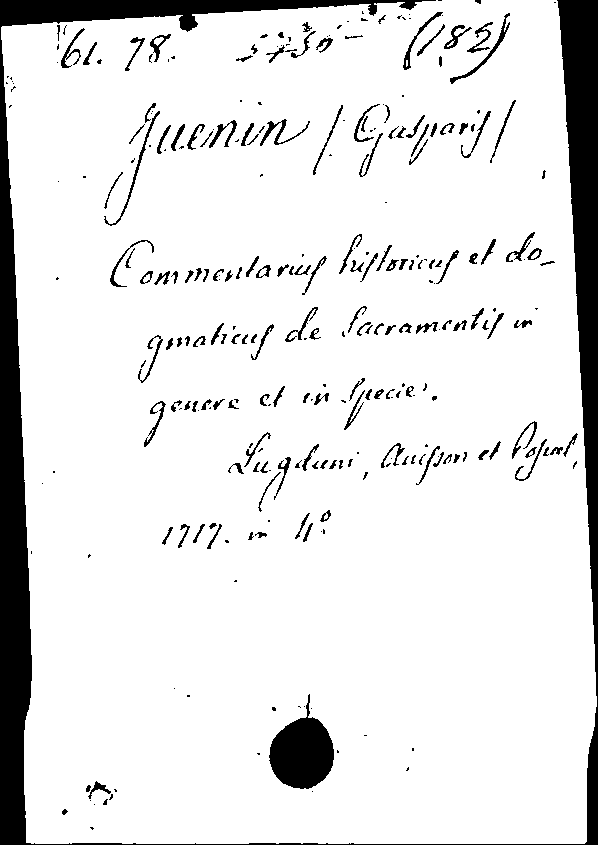 61. 78. 5750 (182)
Juenin / Gasparis /
Commentarius historicus et do-
gmaticus de Sacramentis in
genere et in specie.
Lugduni, Anisson et Posuel,
1717. in 4°